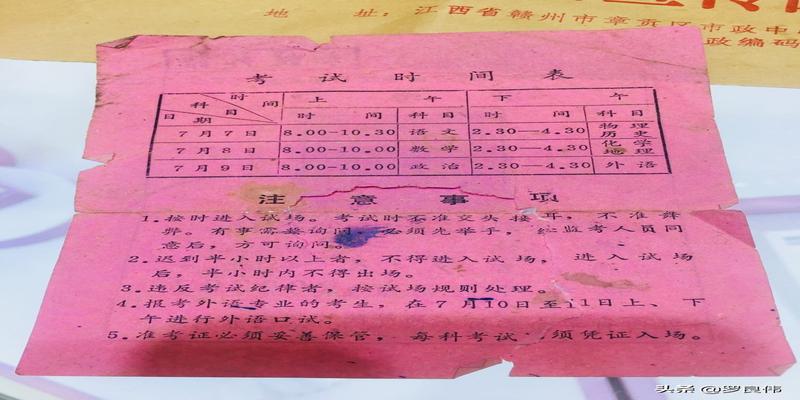 地 址：江西省赣州市章贡区市政中
政编码
考试时间表
时间 科目 日期 上午 下午
时间 科目 时间 科目
7月7日 8.00—10.30 语文 2.30—4.30 物理 历史
7月8日 8.00—10.00 数学 2.30—4.30 化学 地理
7月9日 8.00—10.00 政治 2.30—4.30 外语
注意事项
1.按时进入试场。考试时不准交头接耳，不准舞
弊。有事需要询问，必须先举手，经监考人员同
意后，方可询问。
2.迟到半小时以上者，不得进入试场，进入试场
后，半小时内不得出场。
3.违反考试纪律者，按试场规则处理。
4.报考外语专业的考生，在7月10日至11日上、下
午进行外语口试。
5.准考证必须妥善保管，每科考试 须凭证入场。
头条 @罗良伟